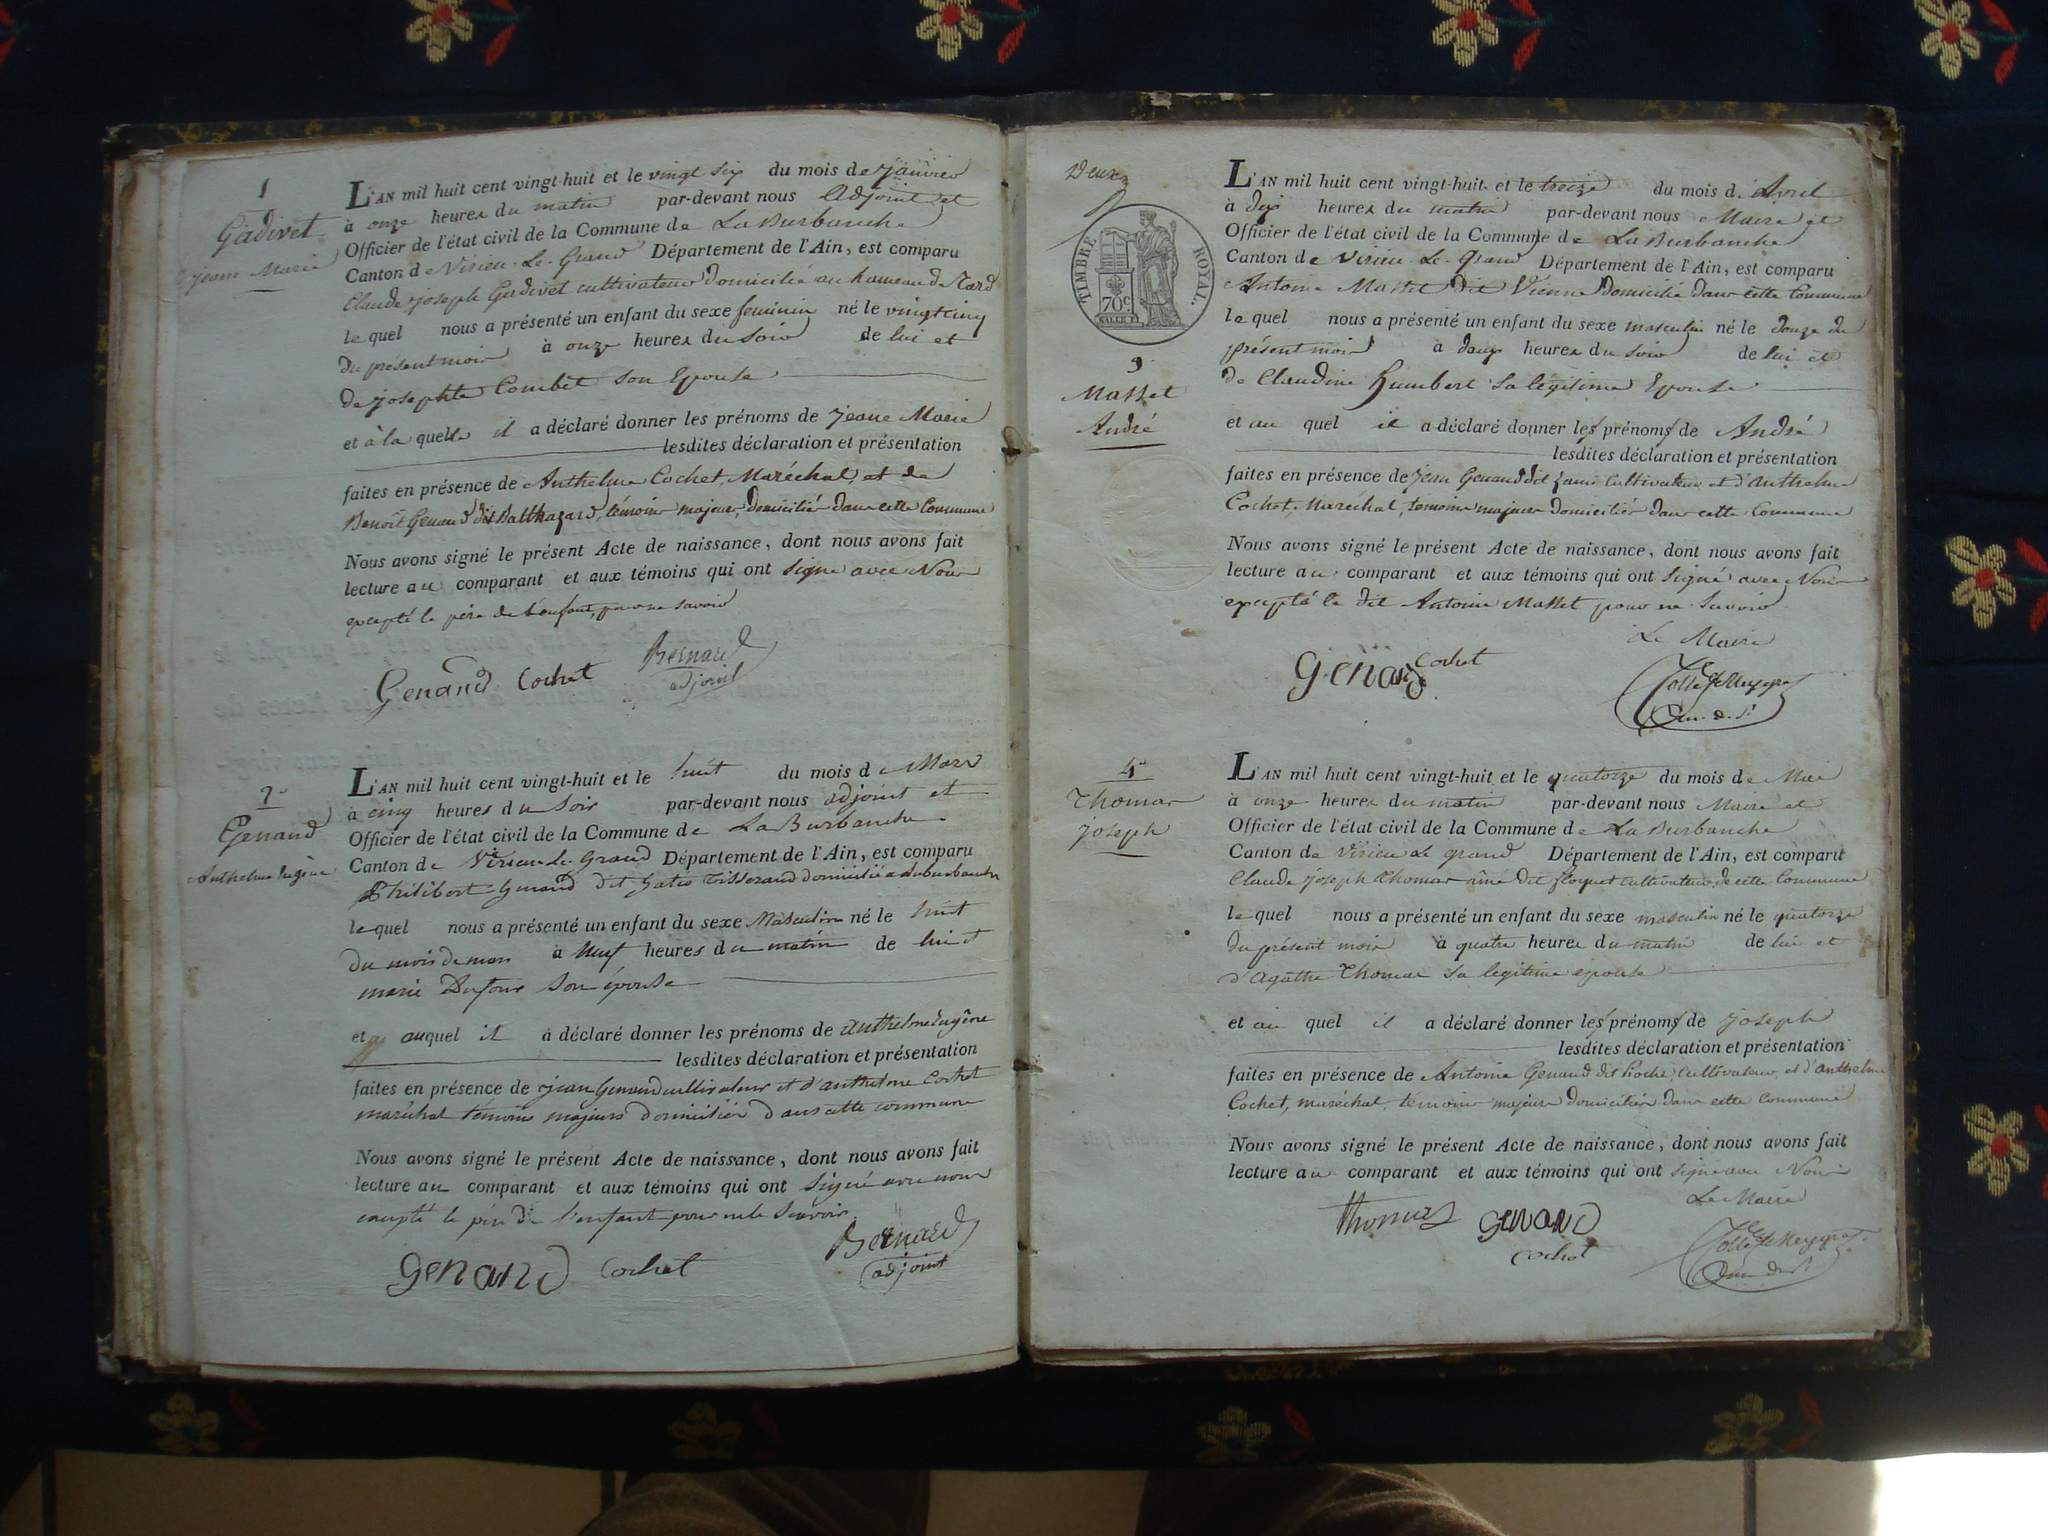 1
Gadivet
jeane Marie
L'AN mil huit cent vingt-huit et le vingt six du mois de janvier
à onze heures du matin par-devant nous Adjoint et
Officier de l'état civil de la Commune de La Burbanche
Canton de Virieu-Le-Grand Département de l'Ain, est comparu
Claude joseph Gadivet cultivateur domicilié au hameau de
le quel nous a présenté un enfant du sexe feminin né le vingt cinq
du présent mois à onze heures du soir de lui et
de josephte Combet son Epouse
et à la quelle il a déclaré donner les prénoms de jeane Marie
lesdites déclaration et présentation
faites en présence de Anthelme Cochet, Maréchal, et de
Benoît Genand dit Balthazard, témoins majeurs, domiciliés dans cette Commune
Nous avons signé le présent Acte de naissance, dont nous avons fait
lecture au comparant et aux témoins qui ont signé avec Nous
excepté le père de l'enfant, pour ne savoir
Genand Cochet Bernard
adjoint
2
Genand
Anthelme Eugène
L'AN mil huit cent vingt-huit et le huit du mois de Mars
à cinq heures du Soir par-devant nous adjoint et
Officier de l'état civil de la Commune de La Burbanche
Canton de Virieu-le-Grand Département de l'Ain, est comparu
Philibert Genand dit Tisserand domicilié à
le quel nous a présenté un enfant du sexe Masculin né le huit
du mois de mars à Neuf heures du matin de lui et
marie Dufour son épouse
et auquel il a déclaré donner les prénoms de Anthelme Eugêne
lesdites déclaration et présentation
faites en présence de jean Genand cultivateur et d'anthelme Cochet
maréchal témoins majeurs domiciliés dans cette commune
Nous avons signé le présent Acte de naissance, dont nous avons fait
lecture au comparant et aux témoins qui ont signé avec nous
excepté le père de l'enfant pour ne le Savoir
Genand Cochet Bernard
adjoint
Deux
TIMBRE ROYAL.
70c
3
Masset
André
L'AN mil huit cent vingt-huit et le treize du mois d'Avril
à dix heures du matin par-devant nous Maire et
Officier de l'état civil de la Commune de La Burbanche
Canton de Virieu-Le-Grand Département de l'Ain, est comparu
Antoine Masset dit Vienne domicilié dans cette Commune
le quel nous a présenté un enfant du sexe masculin né le douze du
présent mois à deux heures du soir de lui et
de Claudine Humbert sa légitime Epouse
et au quel il a déclaré donner les prénoms de André
lesdites déclaration et présentation
faites en présence de jean Genand dit cultivateur et d'Anthelme
Cochet, Maréchal, temoins majeurs domiciliés dans cette Commune
Nous avons signé le présent Acte de naissance, dont nous avons fait
lecture au comparant et aux témoins qui ont signé avec Nous
excepté le dit Antoine Masset pour ne savoir
Le Maire
Genand Cochet
4
Thomas
joseph
L'AN mil huit cent vingt-huit et le quatorze du mois de Mai
à onze heures du matin par-devant nous Maire et
Officier de l'état civil de la Commune de La Burbanche
Canton de Virieu le grand Département de l'Ain, est comparu
Claude joseph Thomas aîné dit floquet cultivateur, de cette Commune
le quel nous a présenté un enfant du sexe masculin né le quatorze
du présent mois à quatre heures du matin de lui et
d'Agathe Thomas sa legitime epouse
et au quel il a déclaré donner les prénoms de joseph
lesdites déclaration et présentation
faites en présence de Antoine Genand dit cultivateur, et d'anthelme
Cochet, maréchal, témoins majeurs domiciliés dans cette Commune
Nous avons signé le présent Acte de naissance, dont nous avons fait
lecture au comparant et aux témoins qui ont signé avec Nous
Le Maire
Thomas Genand
Cochet